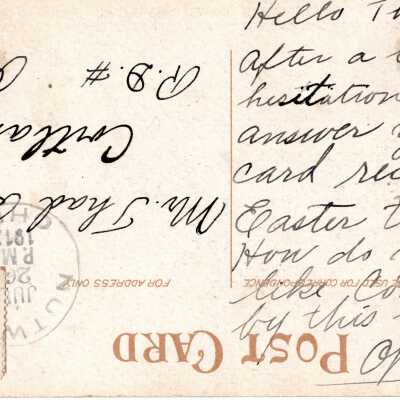 Hello
After a
hesitation
answer
card rec
Easter
How do
like Co
by this
Mr. Thad
Cortla
R.D. #
POST CARD
FOR ADDRESS ONLY
USED FOR CORRESPONDENCE
NUTW
OH
JU
26
P.M
191